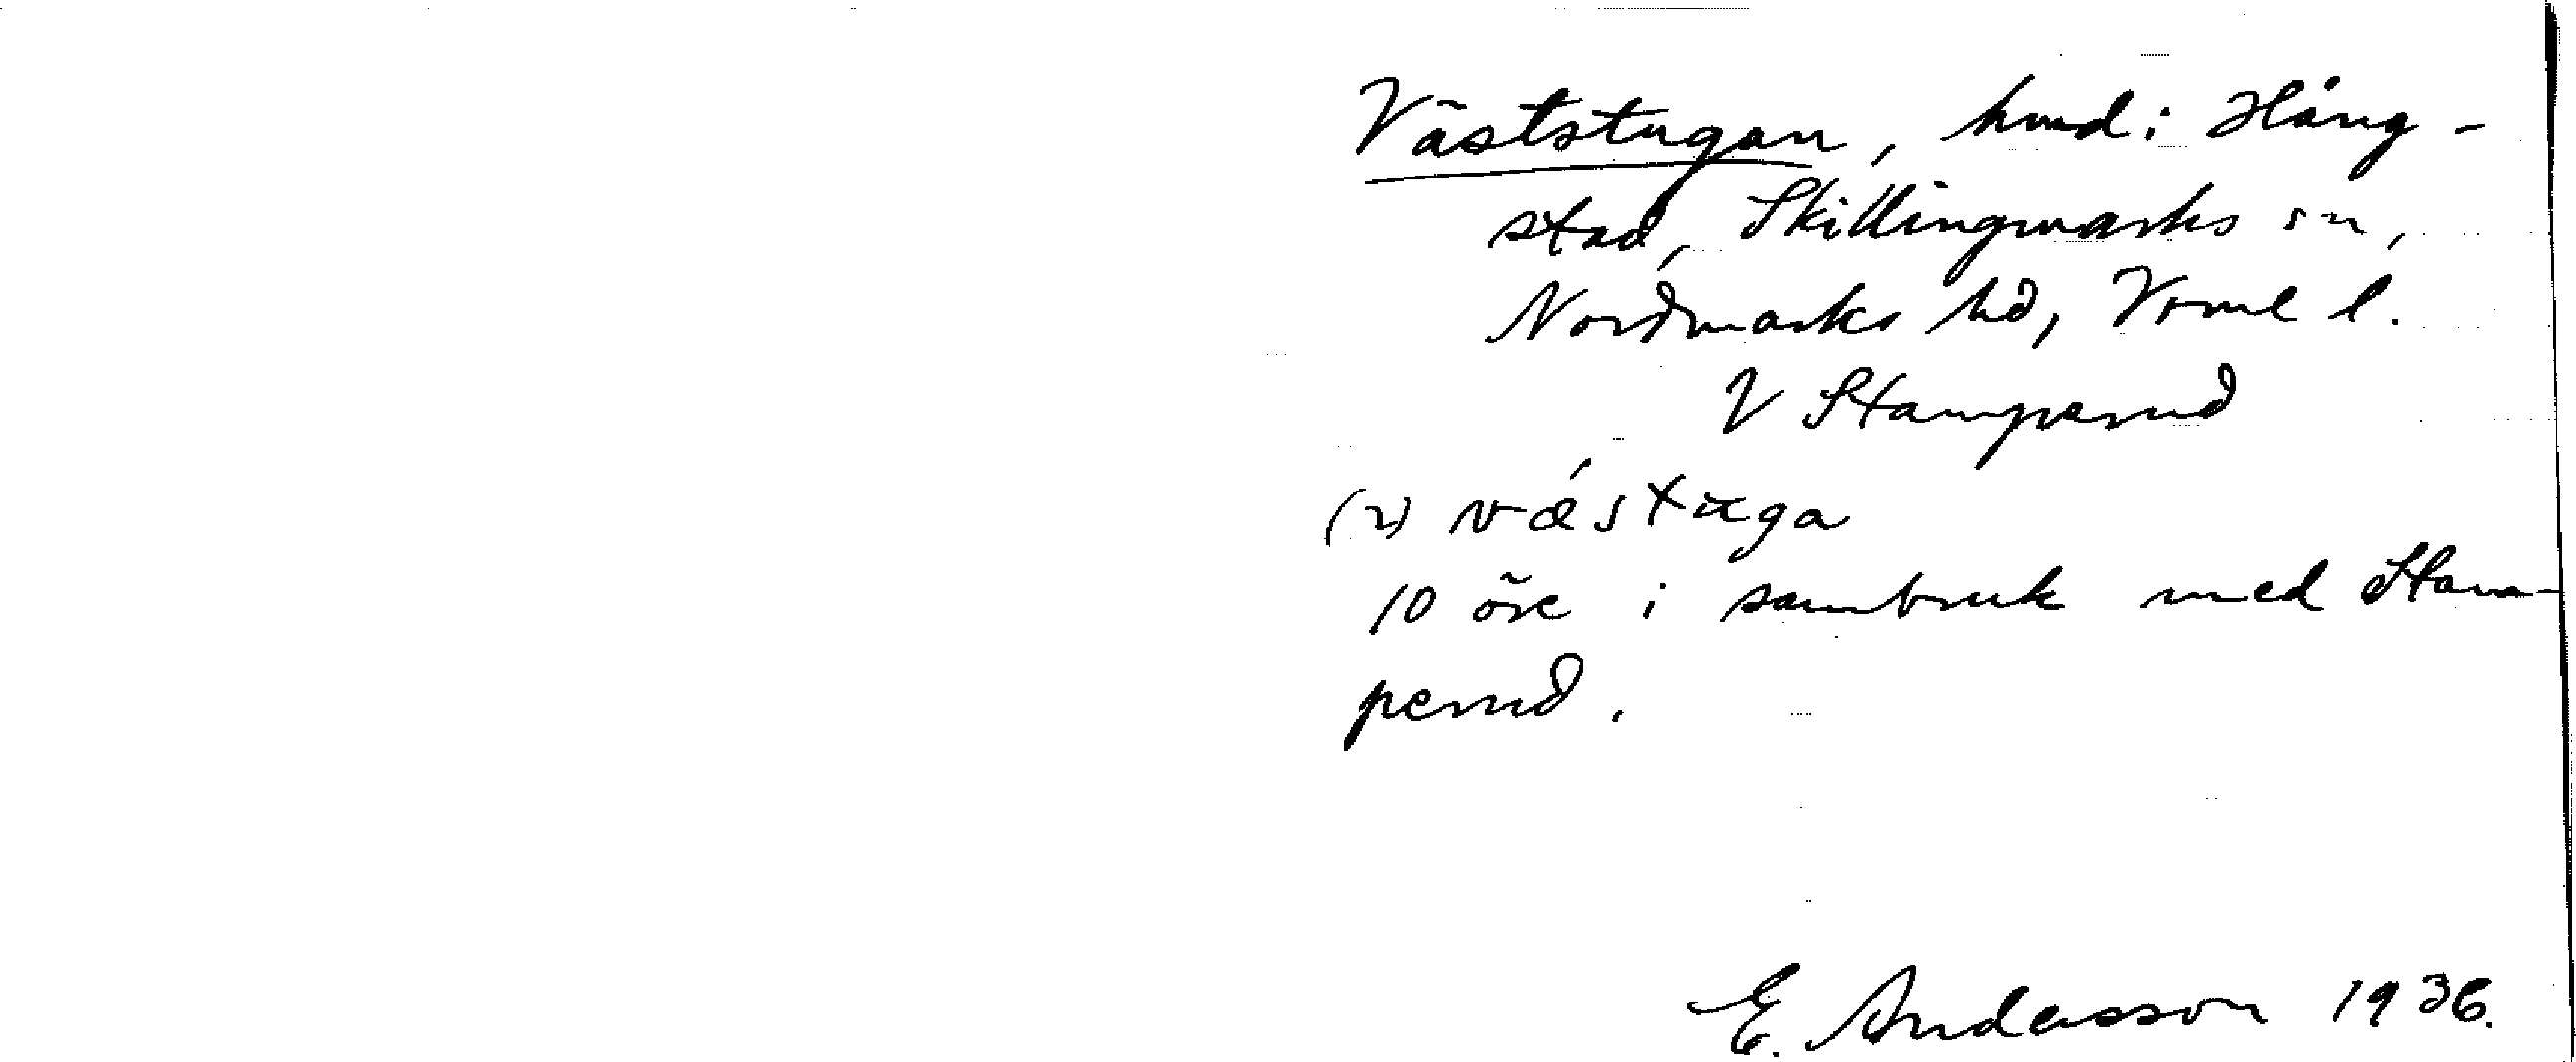 Väststugan, hmd i Häng-
stad, Skillingmarks sn,
Nordmarks hd, Vrml l.
V Stamperud
(2) vǽstuga
10 öre i sambruk med Stam-
perud.
E. Andersson 1936.